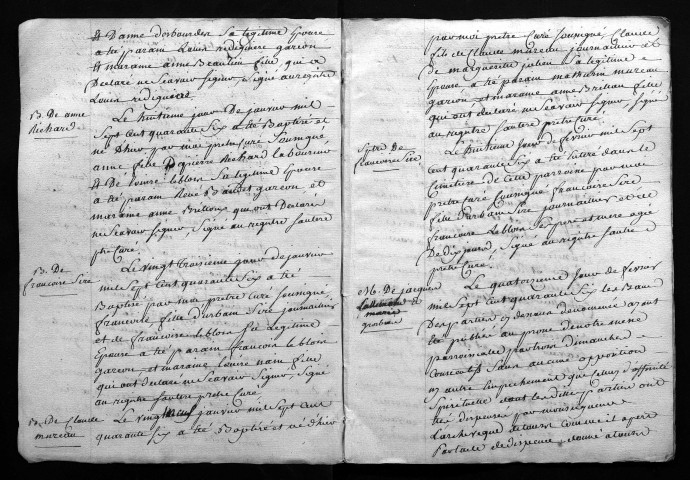 & D'anne desbourdes sa legitime Epouse
a été parain Louis rediguere garcon
& maraine anne Beaulieu fille qui a
Declaré ne scavoir signer, signé au registre
Louis
B. De anne
Richard
Le huitieme jour De janvier mil
sept cent quarante six a été Baptisé et
né D'hier par moi pretre curé soussigné
anne fille De pierre Richard laboureur
& De Louise leblois sa legitime Epouse
a été parain René garcon, et
maraine anne qui ont Declaré
ne scavoir signer, signé au registre
ptre curé
B. De
francoise Siré
Le vingt troisieme jour de janvier
mil sept cent quarante six a été
Baptisé par moi pretre curé soussigné
francoise, fille d'urbain Siré journalier
et de francoise leblois sa legitime
Epouse a été parain francois leblois
garcon, et maraine Louise fille
qui ont declaré ne scavoir signer, signé
au registre pretre curé
B. De Claude
mureau
Le vingt janvier mil sept cent
quarante six a été Baptisé et né d'hier
par moi pretre curé soussigné Claude
fils de Claude mureau journalier et
De marguerite julien sa legitime
Epouse a été parain mathurin mureau
garcon, et maraine anne fille
qui ont déclaré ne scavoir signer, signé
au registre pretre curé
S. de
francoise Siré
Le huitieme jour de fevrier mil sept
cent quarante six a été dans le
Cimetiere de cette parroisse par moi
pretre curé soussigné francoise Siré
fille d'urbain Siré journalier et de
francoise Leblois ses pere et mere agé
De dix jours, signé au registre
pretre curé
M. De jacques
et
marie
Le quatorzieme jour de fevrier
mil sept cent quarante six les Bans
Des parties ci dessous denommées ayant
été publiés au prone de notre messe
parroissiale par trois dimanches
consecutifs sans aucune opposition
ny autre empechement que celuy d'affinité
spirituelle dont les dites parties ont
été dispensé par monseigneur
L'archeveque de tours comme il apert
par l'acte de dispense, donné a tours